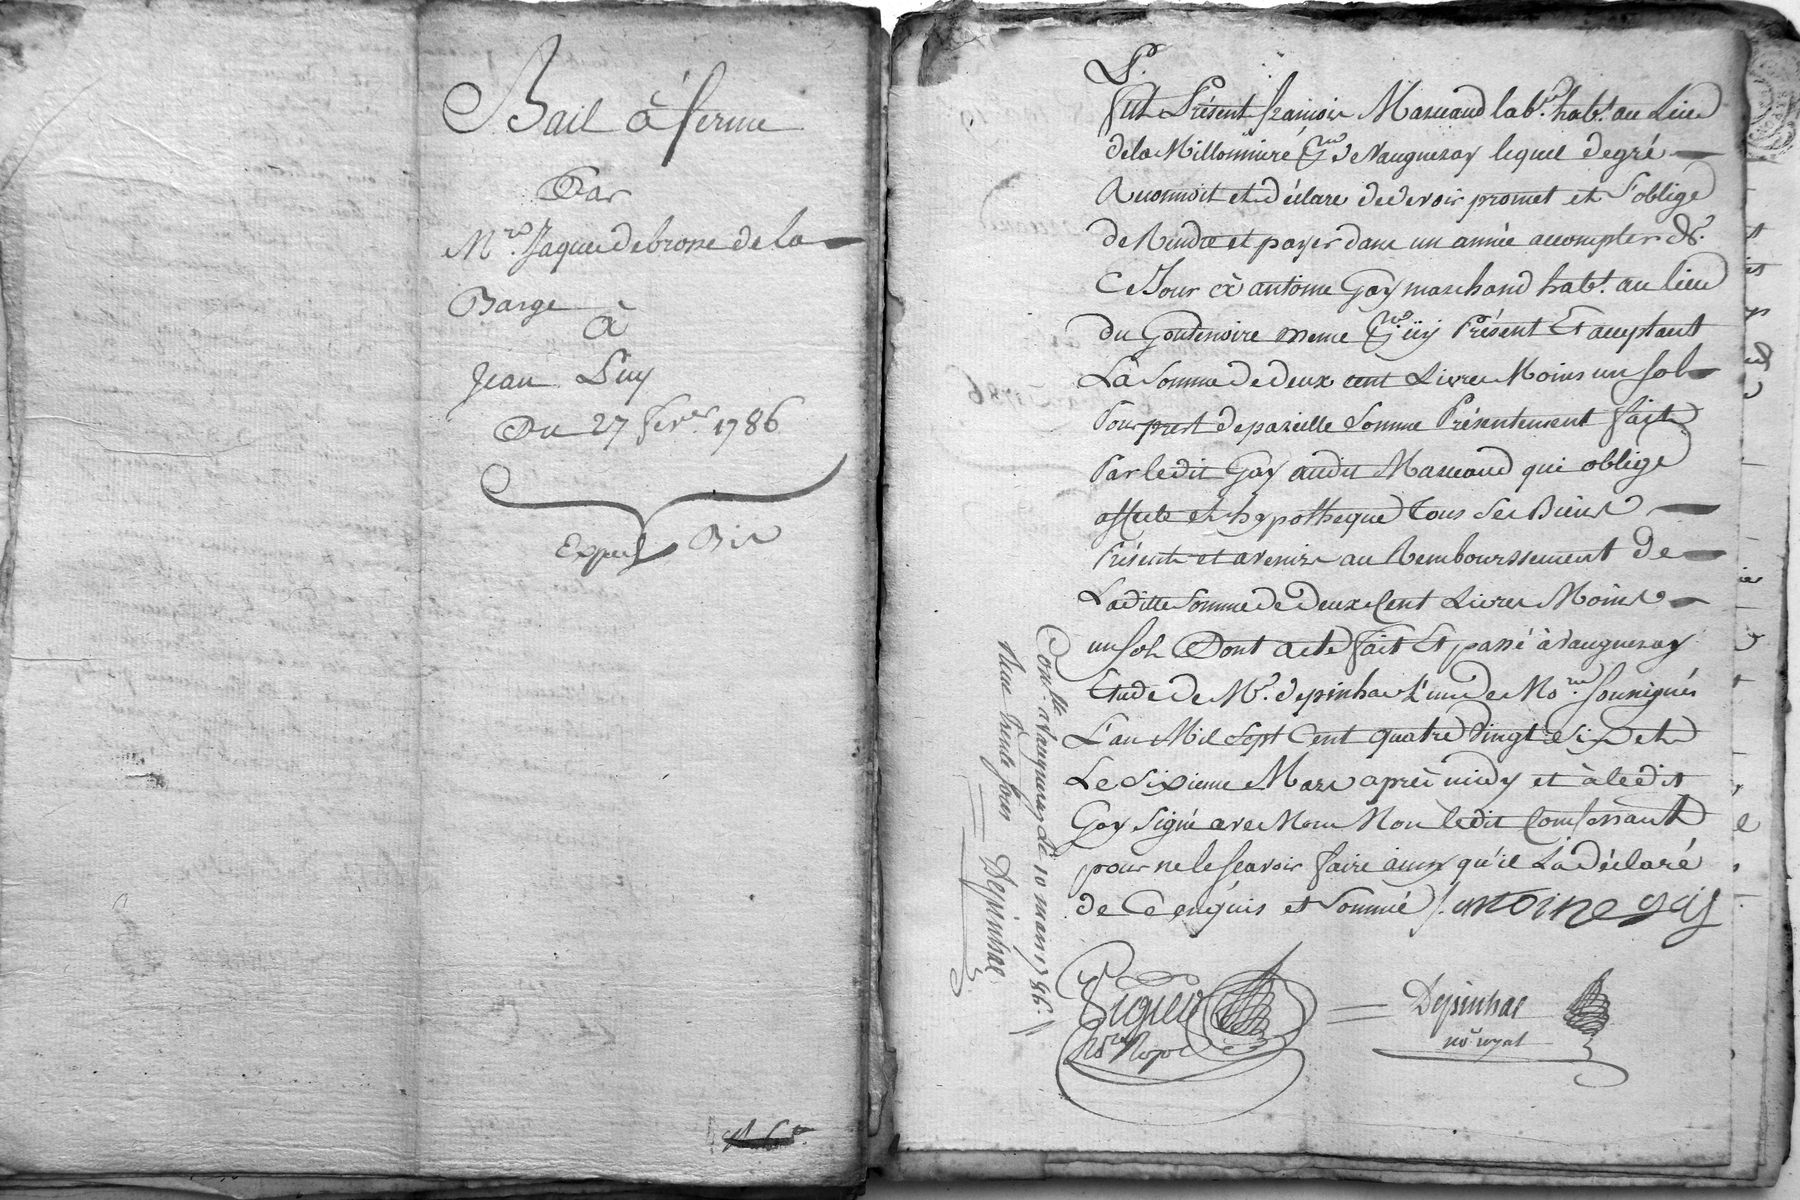 Bail à ferme
Par
Mre Jaque debrosse de la
Barge
à
Jean Puy
Du 27 fevrer 1786
Exped Bis
P.
fut Présent françois Marcaud labr. habt. au Lieu
de la Millonniere de Vaugneray lequel de gré
Reconnoit et déclare de devoir promet et s'oblige
de Rendre et payer dans un année a compter de
Ce Jour à antoine Gay marchand habt. au lieu
du Goutenoire meme icy Présent Et acceptant
La Somme de deux cent Livres Moins un sol
Pour prest de pareille Somme Présentement fait
Par le dit Gay audit Marcaud qui oblige
affecte et hypotheque tous ses Biens
Présents et avenirs au Remboursement de
La ditte Somme de deux Cent Livres Moins
un sol Dont acte fait Et passé à Vaugneray
Etude de Me. depinhac L'un des Nores Sousignés
L'an Mil Sept Cent quatre Vingt Six et
Le Sixieme Mars après midy et à ledit
Gay Signé avec Nous Non ledit Confessant
pour ne le Sçavoir faire ainsy qu'il L'a déclaré
de Ce enquis et Sommé antoine gay
Depinhac
nore royal
Conllé. a Vaugneray Le 10 mars 1786
Depinhac